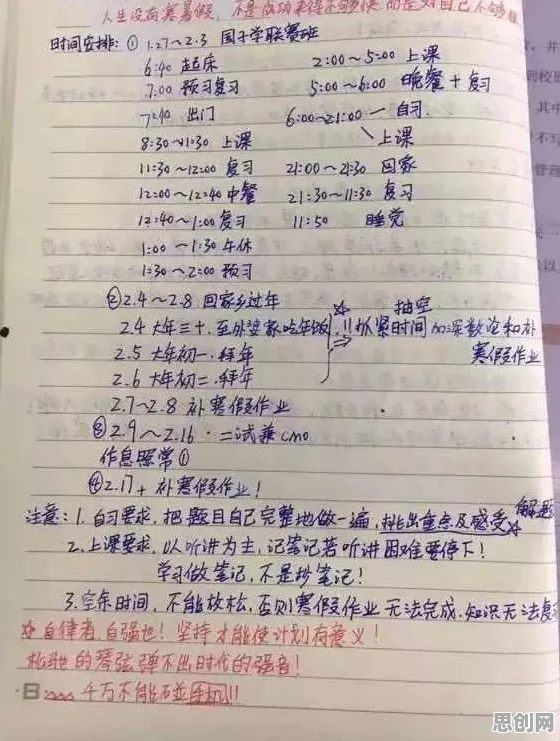 人生没有寒暑假,不是成功来得不够快,而是对自己不够狠
时间安排:① 1.27~2.3 国子学联赛班
6:40 起床 2:00~5:00 上课
7:00 预习复习 5:00~6:00 晚餐+复习
7:40 出门 6:00~21:00 — 自习
8:30~11:30 上课 上课
11:30~12:00 复习 21:00~21:30 回家
12:00~12:40 中餐 21:30~11:30 复习
12:40~1:00 复习 11:50 睡觉
1:00~1:30 午休
1:30~2:00 预习
②2.4~2.8 回家乡过年 ☆ 抽空
2.4 大年三十.至外婆家吃年饭,!!抓紧时间加深数论和补
2.5 大年初一.拜年 ⇒ 寒假作业
2.6 大年初二.拜年
2.7~2.8 补寒假作业
③2.9~2.16.二试兼cmo
作息照常①
④2.17+ 补寒假作业!
注意:1.自习要求,把题目自己完整地做一遍,挑出重点及感受☆ 解题
2.上课要求,以听讲为主,记笔记若听讲困难要停下!
学习做笔记,不是抄笔记!
3.空余时间,不能放松,否则寒假作业无法完成.知识无法复
☆自律者,自强也!坚持才能使计划有意义!
松驰的琴弦弹不出时代的强音!
·日 千万不能碰手机!!
思创网